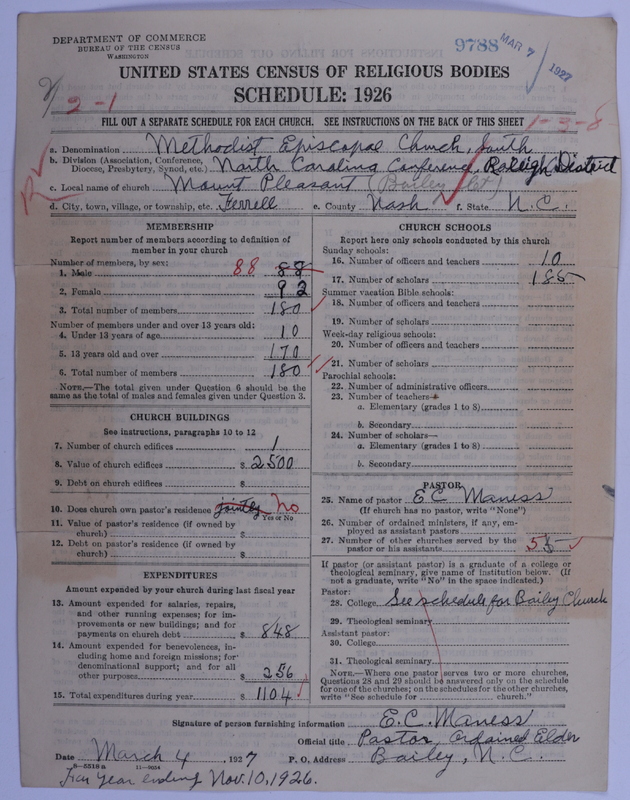 DEPARTMENT OF COMMERCE
BUREAU OF THE CENSUS
WASHINGTON
9788 MAR 7 1927
UNITED STATES CENSUS OF RELIGIOUS BODIES
SCHEDULE: 1926
2-1
FILL OUT A SEPARATE SCHEDULE FOR EACH CHURCH. SEE INSTRUCTIONS ON THE BACK OF THIS SHEET
1-3-8
a. Denomination Methodist Episcopal Church, South
b. Division (Association, Conference, Diocese, Presbytery, Synod, etc.) North Carolina Conference, Raleigh District
c. Local name of church Mount Pleasant (Bailey Ckt)
d. City, town, village, or township, etc. Ferrell e. County Nash f. State N.C.
MEMBERSHIP
Report number of members according to definition of
member in your church
Number of members, by sex:
1. Male 88 88
2. Female 92
3. Total number of members 180
Number of members under and over 13 years old:
4. Under 13 years of age 10
5. 13 years old and over 170
6. Total number of members 180
NOTE.—The total given under Question 6 should be the
same as the total of males and females given under Question 3.
CHURCH BUILDINGS
See instructions, paragraphs 10 to 12
7. Number of church edifices 1
8. Value of church edifices $ 2500
9. Debt on church edifices $
10. Does church own pastor's residence jointly No
Yes or No
11. Value of pastor's residence (if owned by
church) $
12. Debt on pastor's residence (if owned by
church) $
EXPENDITURES
Amount expended by your church during last fiscal year
13. Amount expended for salaries, repairs,
and other running expenses; for im-
provements or new buildings; and for
payments on church debt $ 848
14. Amount expended for benevolences, in-
cluding home and foreign missions; for
denominational support; and for all
other purposes $ 256
15. Total expenditures during year $ 1104
CHURCH SCHOOLS
Report here only schools conducted by this church
Sunday schools:
16. Number of officers and teachers 10
17. Number of scholars 185
Summer vacation Bible schools:
18. Number of officers and teachers
19. Number of scholars
Week-day religious schools:
20. Number of officers and teachers
21. Number of scholars
Parochial schools:
22. Number of administrative officers
23. Number of teachers—
a. Elementary (grades 1 to 8)
b. Secondary
24. Number of scholars—
a. Elementary (grades 1 to 8)
b. Secondary
PASTOR
25. Name of pastor E C Maness
(If church has no pastor, write "None")
26. Number of ordained ministers, if any, em-
ployed as assistant pastors
27. Number of other churches served by the
pastor or his assistants 5
If pastor (or assistant pastor) is a graduate of a college or
theological seminary, give name of institution below. (If
not a graduate, write "No" in the space indicated.)
Pastor:
28. College See schedule for Bailey Church
29. Theological seminary
Assistant pastor:
30. College
31. Theological seminary
NOTE.—Where one pastor serves two or more churches,
Questions 28 and 29 should be answered only on the schedule
for one of the churches; on the schedules for the other churches,
write "See schedule for church."
Signature of person furnishing information E.C. Maness
Official title Pastor, Ordained Elder
Date March 4, 1927 P. O. Address Bailey, N.C.
8-5518a 11-9024
For Year ending Nov. 10, 1926.